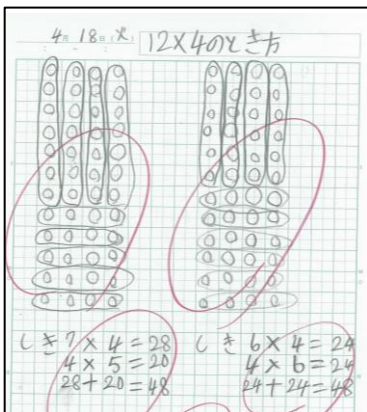 4月18日(火) 12×4のとき方
しき 7×4=28
4×5=20
28+20=48
しき 6×4=24
4×6=24
24+24=48